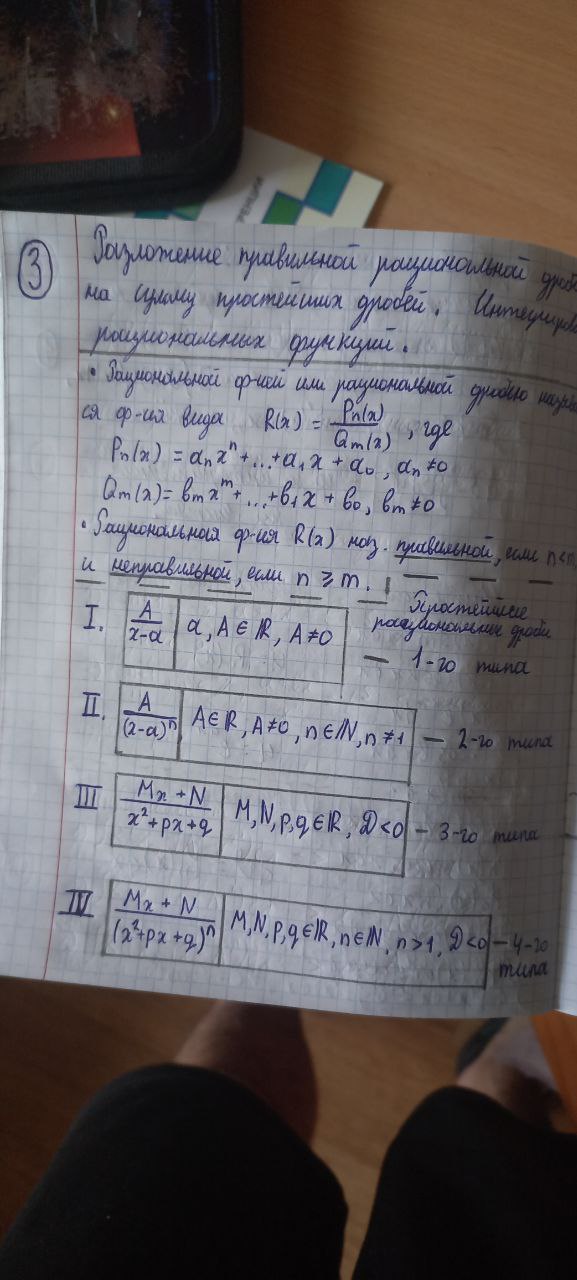 3
Разложение правильной рациональной дроб
на сумму простейших дробей. Интегриров
рациональных функций.
• Рациональной ф-ией или рациональной дробью назыв
ся ф-ия вида R(x) = Pn(x)/Qm(x), где
Pn(x) = aₙxⁿ+...+a₁x + a₀, aₙ≠0
Qm(x) = bₘxᵐ+...+b₁x + b₀, bₘ≠0
• Рациональная ф-ия R(x) наз. правильной, если n<m,
и неправильной, если n ≥ m.
Простейшие
рациональные дроби
I. A/(x-a) a, A ∈ ℝ, A≠0 — 1-го типа
II. A/(x-a)ⁿ A∈ℝ, A≠0, n∈ℕ, n≠1 — 2-го типа
III (Mx + N)/(x²+px+q) M,N,p,q∈ℝ, D<0 — 3-го типа
IV (Mx + N)/(x²+px+q)ⁿ M,N,p,q∈ℝ, n∈ℕ, n>1, D<0 — 4-го
типа